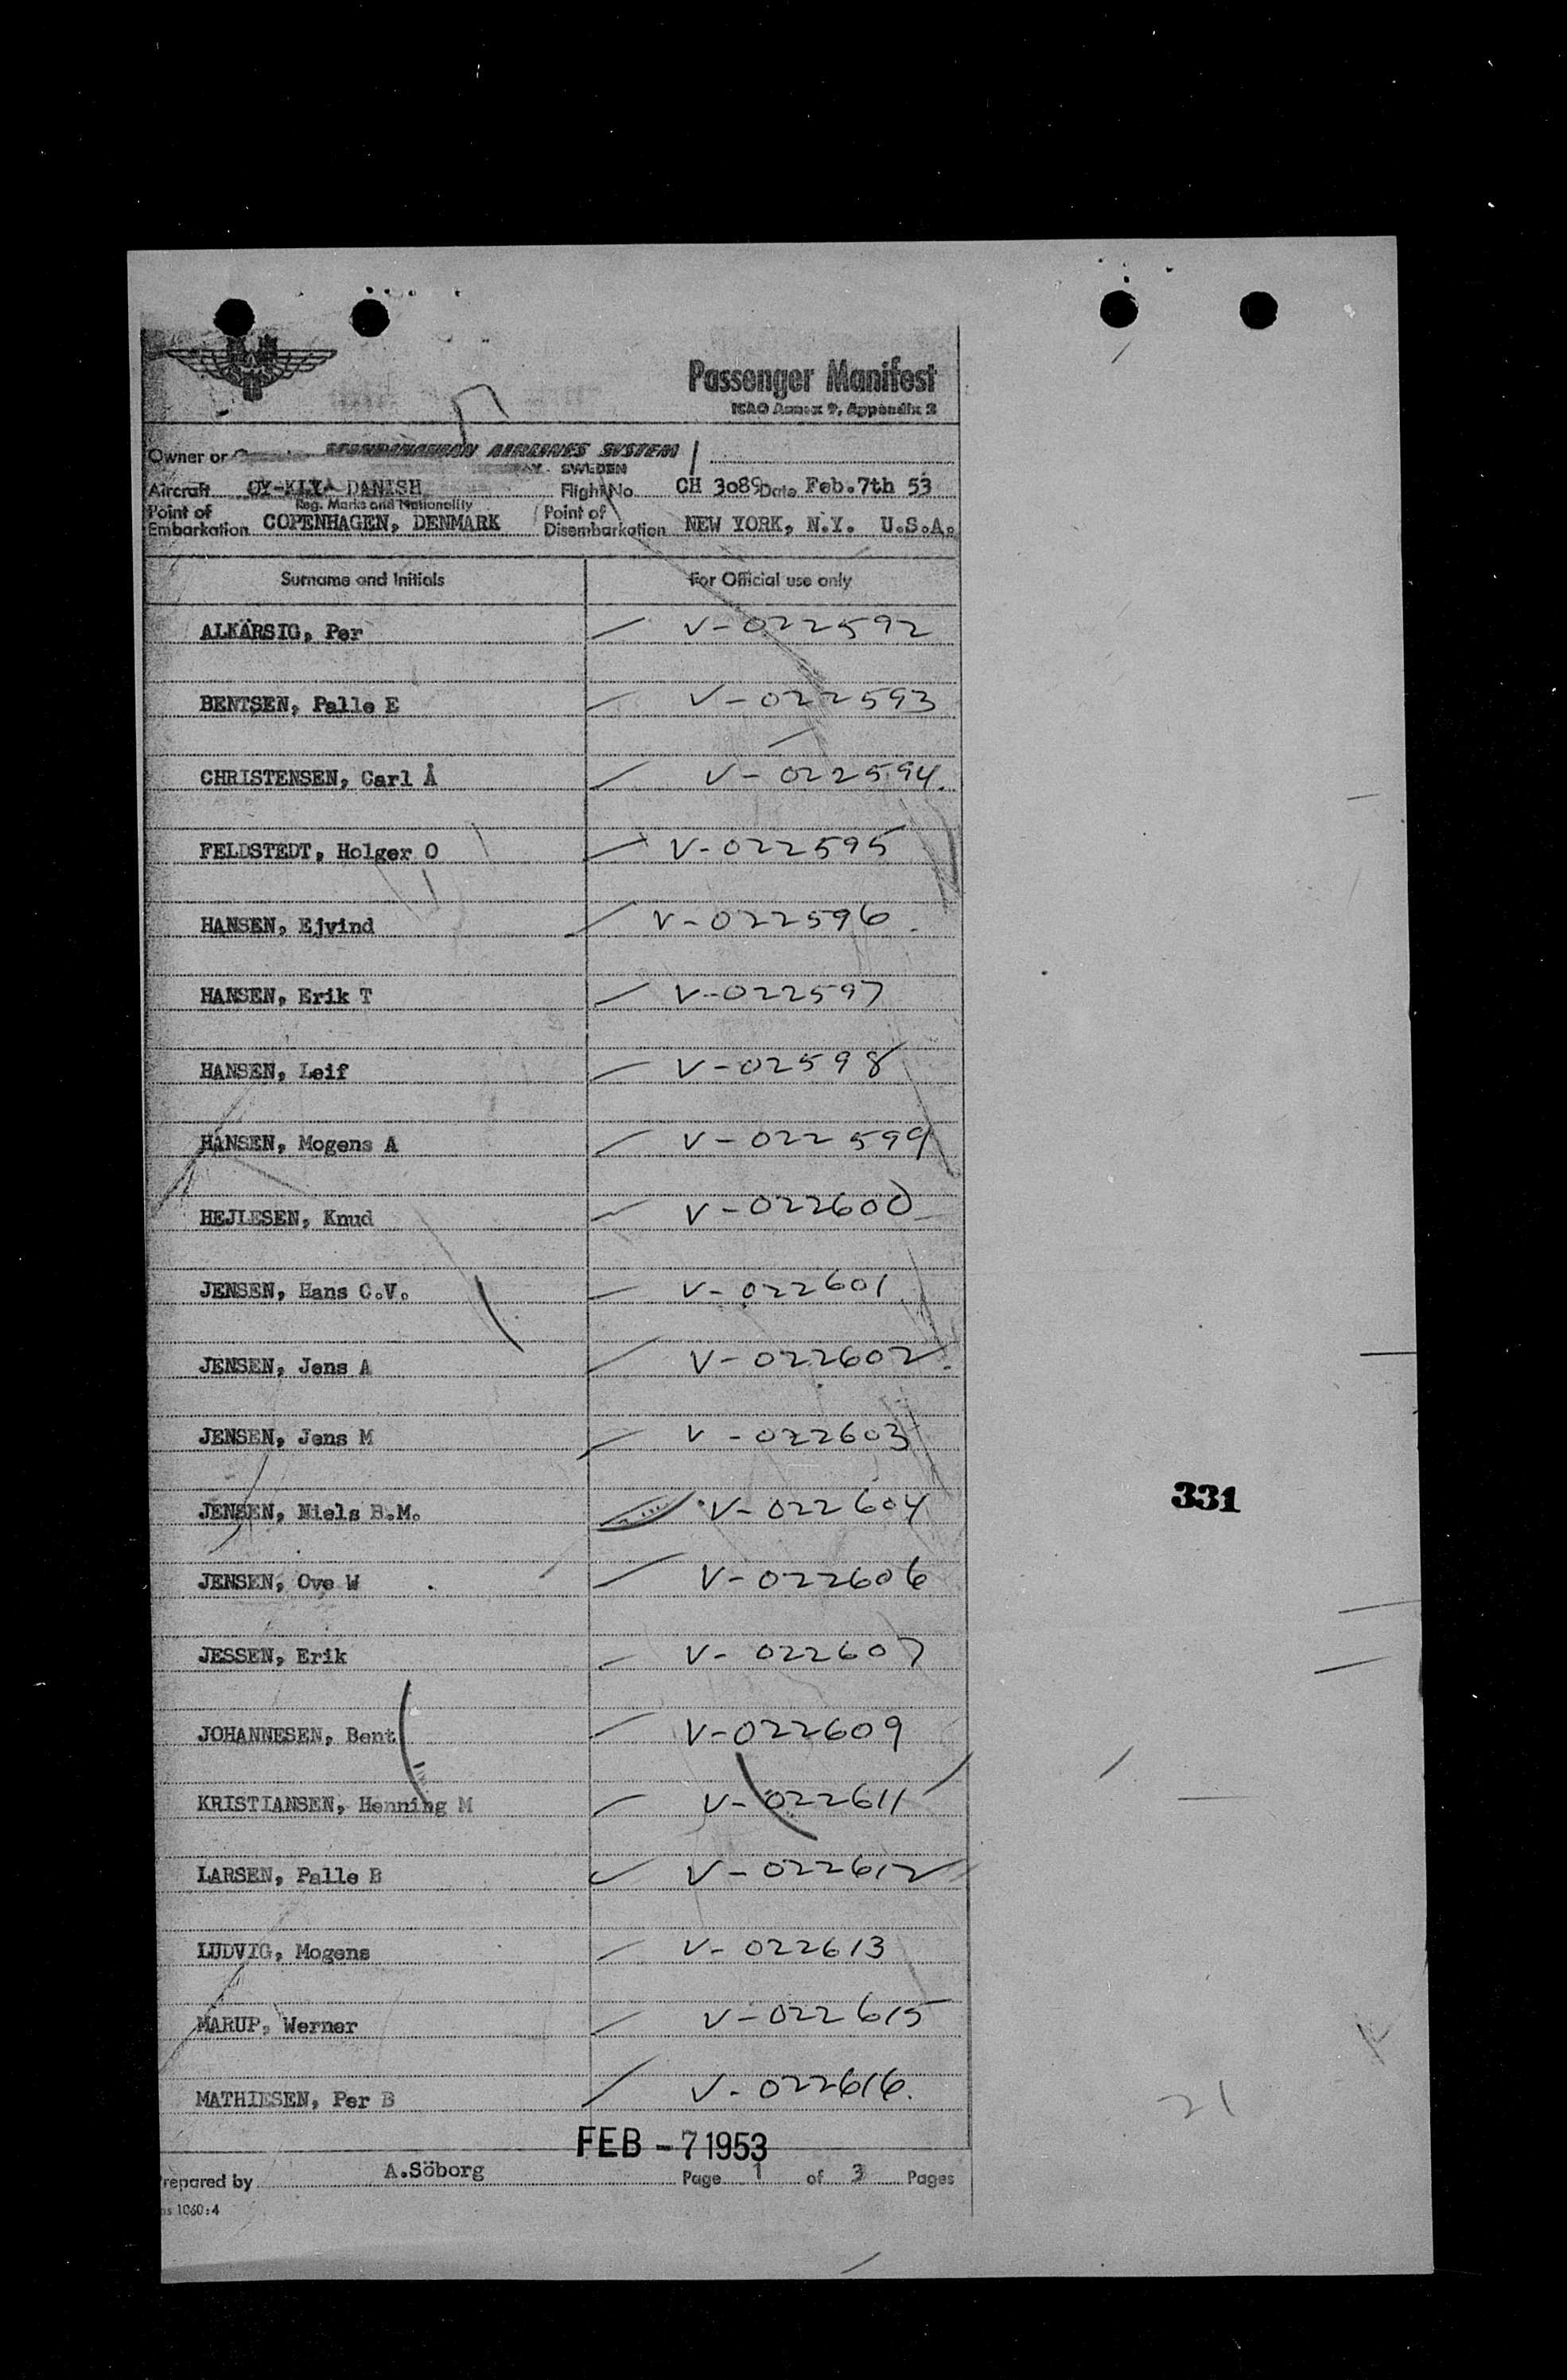 SAS
Passenger Manifest
ICAO Annex 9, Appendix 2
Owner or Operator SCANDINAVIAN AIRLINES SYSTEM
SWEDEN
Aircraft OY-KLY- DANISH Flight No CH 3089 Date Feb.7th 53
Reg. Marks and Nationality
Point of Embarkation COPENHAGEN, DENMARK Point of Disembarkation NEW YORK, N.Y. U.S.A.
Surname and Initials For Official use only
ALKÄRSIG, Per V-022592
BENTSEN, Palle E V-022593
CHRISTENSEN, Carl Å V-022594
FELDSTEDT, Holger O V-022595
HANSEN, Ejvind V-022596
HANSEN, Erik T V-022597
HANSEN, Leif V-02598
HANSEN, Mogens A V-022599
HEJLESEN, Knud V-022600
JENSEN, Hans C.V. V-022601
JENSEN, Jens A V-022602
JENSEN, Jens M V-022603
JENSEN, Niels B.M. V-022604
JENSEN, Ove W V-022606
JESSEN, Erik V-022607
JOHANNESEN, Bent V-022609
KRISTIANSEN, Henning M V-022611
LARSEN, Palle B V-022612
LUDVIG, Mogens V-022613
MARUP, Werner V-022615
MATHIESEN, Per B V-022616.
331
21
FEB -7 1953
Prepared by A.Söborg Page 1 of 3 Pages
1060:4